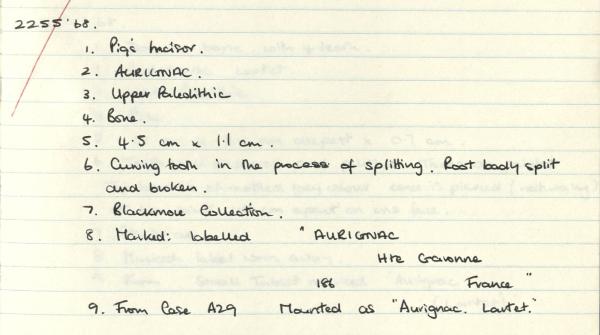 2255'68.
1. Pig's Incisor.
2. AURIGNAC.
3. Upper Paleolithic
4. Bone.
5. 4.5 cm x 1.1 cm.
6. Curving tooth in the process of splitting. Root badly split
and broken.
7. Blackmore Collection.
8. Marked: labelled "AURIGNAC
Hte Garonne
186 France"
9. From Case A29 Mounted as "Aurignac. Lartet."